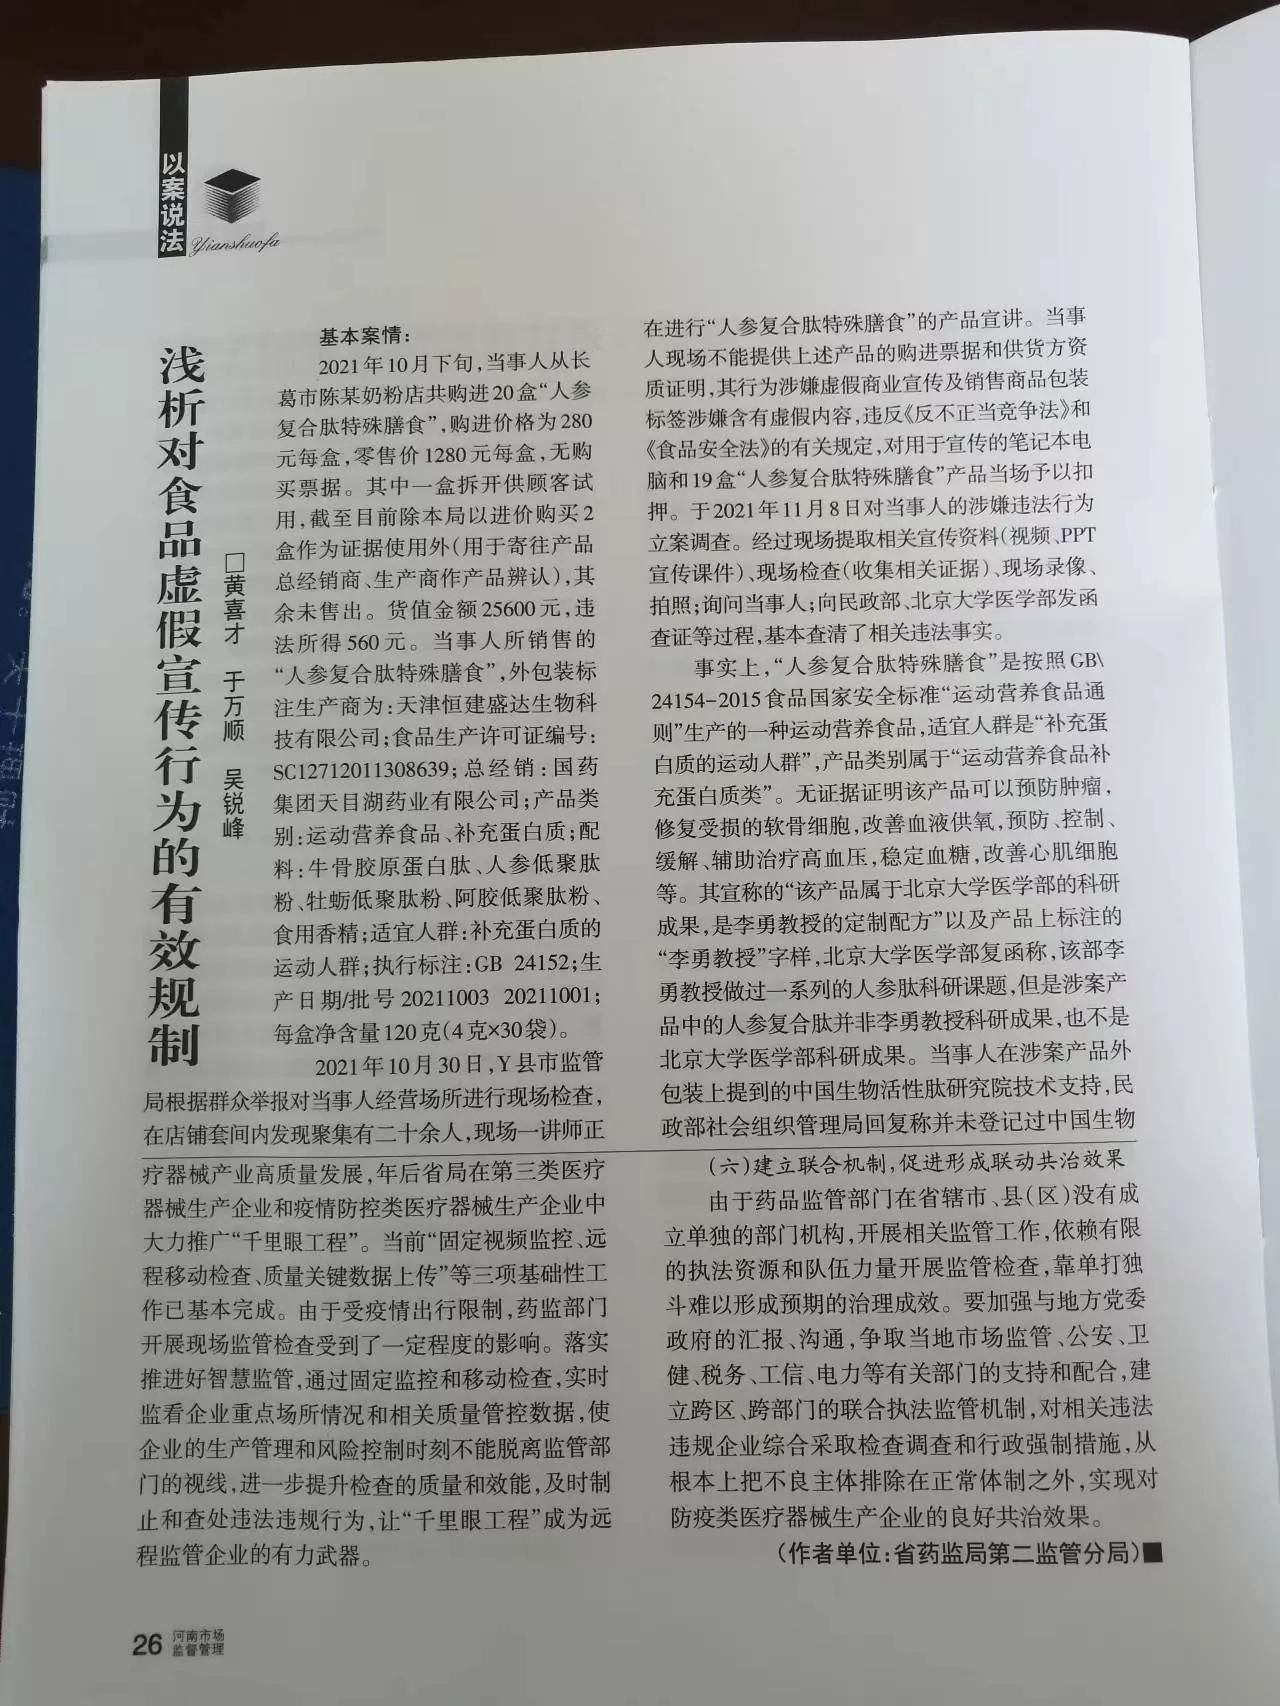 以案说法
Yianshuofa
浅析对食品虚假宣传行为的有效规制
□黄喜才 于万顺 吴锐峰
基本案情：
2021年10月下旬，当事人从长
葛市陈某奶粉店共购进20盒“人参
复合肽特殊膳食”，购进价格为280
元每盒，零售价1280元每盒，无购
买票据。其中一盒拆开供顾客试
用，截至目前除本局以进价购买2
盒作为证据使用外（用于寄往产品
总经销商、生产商作产品辨认），其
余未售出。货值金额25600元，违
法所得560元。当事人所销售的
“人参复合肽特殊膳食”，外包装标
注生产商为：天津恒建盛达生物科
技有限公司；食品生产许可证编号：
SC12712011308639；总经销：国药
集团天目湖药业有限公司；产品类
别：运动营养食品、补充蛋白质；配
料：牛骨胶原蛋白肽、人参低聚肽
粉、牡蛎低聚肽粉、阿胶低聚肽粉、
食用香精；适宜人群：补充蛋白质的
运动人群；执行标注：GB 24152；生
产日期/批号20211003 20211001；
每盒净含量120克（4克×30袋）。
2021年10月30日，Y县市监管
局根据群众举报对当事人经营场所进行现场检查，
在店铺套间内发现聚集有二十余人，现场一讲师正
在进行“人参复合肽特殊膳食”的产品宣讲。当事
人现场不能提供上述产品的购进票据和供货方资
质证明，其行为涉嫌虚假商业宣传及销售商品包装
标签涉嫌含有虚假内容，违反《反不正当竞争法》和
《食品安全法》的有关规定，对用于宣传的笔记本电
脑和19盒“人参复合肽特殊膳食”产品当场予以扣
押。于2021年11月8日对当事人的涉嫌违法行为
立案调查。经过现场提取相关宣传资料（视频、PPT
宣传课件）、现场检查（收集相关证据）、现场录像、
拍照；询问当事人；向民政部、北京大学医学部发函
查证等过程，基本查清了相关违法事实。
事实上，“人参复合肽特殊膳食”是按照GB\
24154-2015食品国家安全标准“运动营养食品通
则”生产的一种运动营养食品，适宜人群是“补充蛋
白质的运动人群”，产品类别属于“运动营养食品补
充蛋白质类”。无证据证明该产品可以预防肿瘤，
修复受损的软骨细胞，改善血液供氧，预防、控制、
缓解、辅助治疗高血压，稳定血糖，改善心肌细胞
等。其宣称的“该产品属于北京大学医学部的科研
成果，是李勇教授的定制配方”以及产品上标注的
“李勇教授”字样，北京大学医学部复函称，该部李
勇教授做过一系列的人参肽科研课题，但是涉案产
品中的人参复合肽并非李勇教授科研成果，也不是
北京大学医学部科研成果。当事人在涉案产品外
包装上提到的中国生物活性肽研究院技术支持，民
政部社会组织管理局回复称并未登记过中国生物
疗器械产业高质量发展，年后省局在第三类医疗
器械生产企业和疫情防控类医疗器械生产企业中
大力推广“千里眼工程”。当前“固定视频监控、远
程移动检查、质量关键数据上传”等三项基础性工
作已基本完成。由于受疫情出行限制，药监部门
开展现场监管检查受到了一定程度的影响。落实
推进好智慧监管，通过固定监控和移动检查，实时
监看企业重点场所情况和相关质量管控数据，使
企业的生产管理和风险控制时刻不能脱离监管部
门的视线，进一步提升检查的质量和效能，及时制
止和查处违法违规行为，让“千里眼工程”成为远
程监管企业的有力武器。
（六）建立联合机制，促进形成联动共治效果
由于药品监管部门在省辖市、县（区）没有成
立单独的部门机构，开展相关监管工作，依赖有限
的执法资源和队伍力量开展监管检查，靠单打独
斗难以形成预期的治理成效。要加强与地方党委
政府的汇报、沟通，争取当地市场监管、公安、卫
健、税务、工信、电力等有关部门的支持和配合，建
立跨区、跨部门的联合执法监管机制，对相关违法
违规企业综合采取检查调查和行政强制措施，从
根本上把不良主体排除在正常体制之外，实现对
防疫类医疗器械生产企业的良好共治效果。
（作者单位：省药监局第二监管分局）■
26 河南市场
监督管理